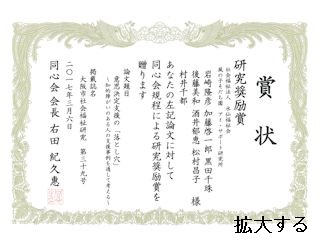 賞状
研究奨励賞
社会福祉法人 水仙福祉会
風の子そだち園 アイ・サポート研究所
岩崎隆彦 加藤啓一郎 黒田千珠
後藤美和 酒井郁恵 松村昌子 様
村井千都
あなたの左記論文に対して
同心会規程による研究奨励賞を
贈ります
論文題目
意思決定支援の「落とし穴」
~知的障がいのある人の支援事例を通して考える~
掲載誌名
大阪市社会福祉研究 第三十九号
二〇一七年三月六日
同心会会長 右田 紀久恵
拡大する